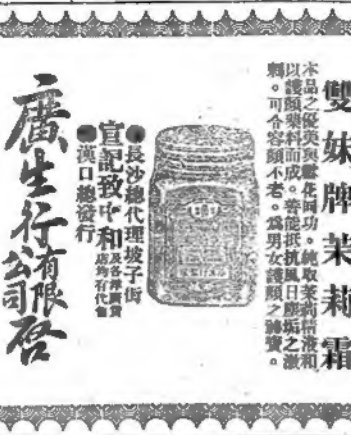 雙妹牌茉莉霜
本品之優美與雪花同功。純取茉莉精液和
以護顏藥料而成。善能抵抗風日塵垢之激
刺。可令容顏不老。為男女護顏之。
●長沙總代理坡子街
宣記致中和及各洋廣貨店均有代售
●漢口總發行
廣生行有限公司啓